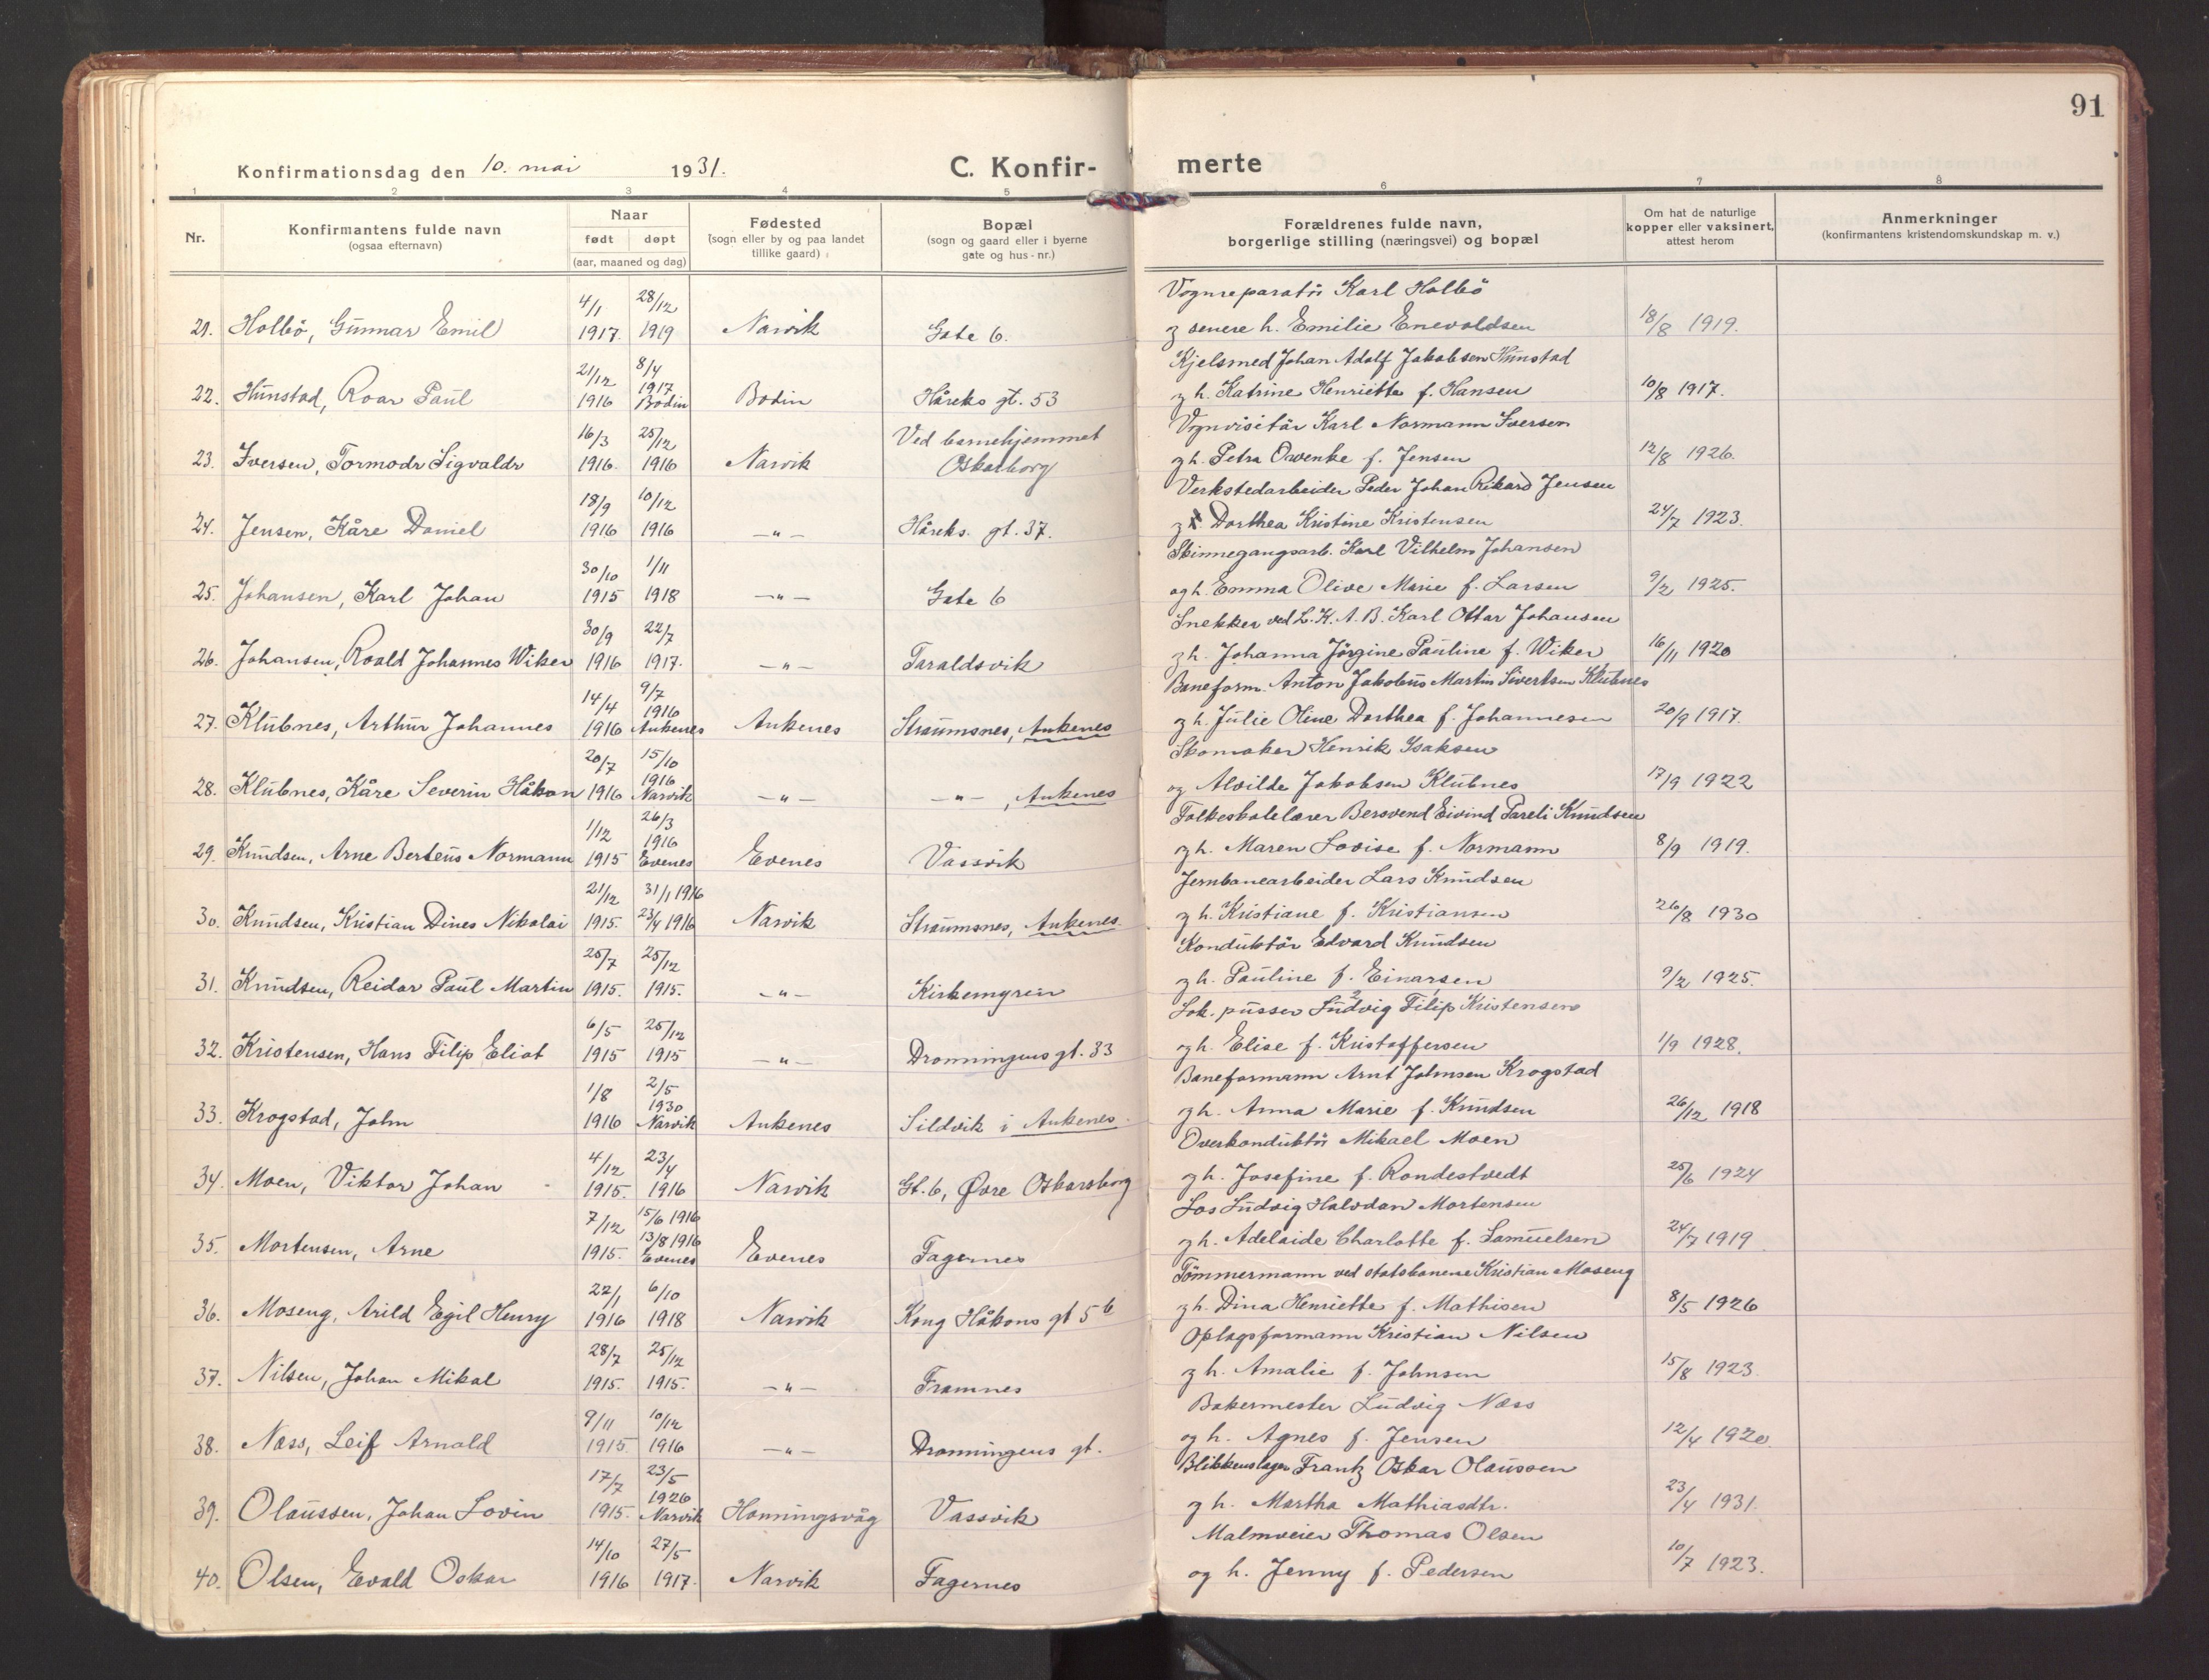 91
Konfirmationsdag den 10. mai 1931. C. Konfir- merte
1 2 3 4 5 6 7 8
Nr. Konfirmantens fulde navn (ogsaa efternavn) Naar født døpt (aar, maaned og dag) Fødested (sogn eller by og paa landet tillike gaard) Bopæl (sogn og gaard eller i byerne gate og hus-nr.) Forældrenes fulde navn, borgerlige stilling (næringsvei) og bopæl Om hat de naturlige kopper eller vaksinert, attest herom Anmerkninger (konfirmantens kristendomskundskap m. v.)
4/1 28/12 Vognreparatör Karl Holbö
21. Holbö, Gunnar Emil 1917. 1919 Narvik Gate 6. og senere h. Emilie Enevoldsen 18/8 1919.
21/12 8/4 1917 Kjelsmed Johan Adolf Jakobsen Hunstad
22. Hunstad, Roar Paul 1916 Bodin Bodin Håreks gt. 53 og h. Katrine Henriette f. Hansen 10/8 1917.
16/3 25/12 Ved barnehjemmet Vognvisitör Karl Normann Iversen
23. Iversen, Tormodr Sigvaldr 1916. 1916 Narvik Oskarborg og h. Petra f. Jensen 12/8 1926.
18/9 10/12 Verkstedarbeider Peder Johan Rikard Jensen
24. Jensen, Kåre Daniel 1916 1916 -"- Håreks. gt. 37. og Dorthea Kristine Kristensen 24/7 1923.
30/10 1/11 Skinnegangsarb. Karl Vilhelm Johansen
25. Johansen, Karl Johan 1915 1918 -"- Gate 6 og h. Emma Olive Marie f. Larsen 9/2 1925.
30/9 22/7 Snekker ved L.K.A.B. Karl Ottar Johansen
26. Johansen, Roald Johannes Wiker 1916 1917. -"- Taraldsvik og h. Johanna Jörgine Pauline f. Wiker 16/11 1920
14/4 9/7 1916 Baneform. Anton Jakobus Martin Sivertsen Klubnes
27. Klubnes, Arthur Johannes 1916 Ankenes Ankenes Straumsnes, Ankenes og h. Julie Oline Dorthea f. Johannesen 20/9 1917.
20/7 15/10 1916 Skomaker Henrik Isaksen
28. Klubnes, Kåre Severin Håkon 1916 Narvik -"- -"-, Ankenes og Alvilde Jakobsen Klubnes 17/9 1922
1/12 26/3 1916 Folkeskolelærer Bersvend Eivind Pareli Knudsen
29. Knudsen, Arne Berteus Normann 1915 Evenes Evenes Vassvik og h. Maren Lovise f. Normann 8/9 1919.
21/12 31/1 1916 Jernbanearbeider Lars Knudsen
30. Knudsen, Kristian Dines Nikolai 1915. 23/4 1916 Narvik Straumsnes, Ankenes. og h. Kristiane f. Kristiansen 26/8 1930
25/7 25/12 Konduktör Edvard Knudsen
31. Knudsen, Reidar Paul Martin 1915. 1915. -"- Kirkemyren og h. Pauline f. Einarsen 9/2 1925.
6/5 25/12 Lok. pusser Ludvig Filip Kristensen
32. Kristensen, Hans Filip Eliot 1915 1915 -"- Dronningens gt. 33 og h. Elise f. Kristoffersen 1/9 1928.
1/8 2/5 1930 Baneformann Arnt Johnsen Krogstad
33. Krogstad, John 1916 Narvik Ankenes Sildvik i Ankenes. og h. Anna Marie f. Knudsen 26/12 1918
4/12 23/4 Overkonduktör Mikael Moen
34. Moen, Viktor Johan 1915. 1916 Narvik Gt. 6, Øvre Oskarsborg og h. Josefine f. Rondestvedt 25/6 1924
7/12 15/6 1916 Los Ludvig Halvdan Mortensen
35. Mortensen, Arne 1915. 13/8 1916 Evenes Evenes Fagernes og h. Adelaide Charlotte f. Samuelsen 24/7 1919
22/1 6/10 Tömmermann ved statsbanene Kristian Moseng
36. Moseng, Arild Egil Henry 1916 1918 Narvik Kong Håkons gt 5 b og h. Dina Henriette f. Mathisen 8/5 1926
28/7 25/12 Oplagsformann Kristian Nilsen
37. Nilsen, Johan Mikal 1915. 1915. -"- Framnes og h. Amalie f. Johnsen 15/8 1923.
9/11 10/12 Bakermester Ludvig Næss
38. Næss, Leif Arnold 1915. 1916 -"- Dronningens gt. og h. Agnes f. Jensen 12/4 1920.
17/7 23/5 1926 Blikkenslager Frantz Oskar Olaussen
39. Olaussen, Johan Lovin 1915. Narvik Honningsvåg Vassvik og h. Martha Mathiasdtr. 23/4 1931.
14/10 27/5 Malmveier Thomas Olsen
40. Olsen, Evald Oskar 1916 1917. Narvik Fagernes og h. Jenny f. Pedersen 10/7 1923.